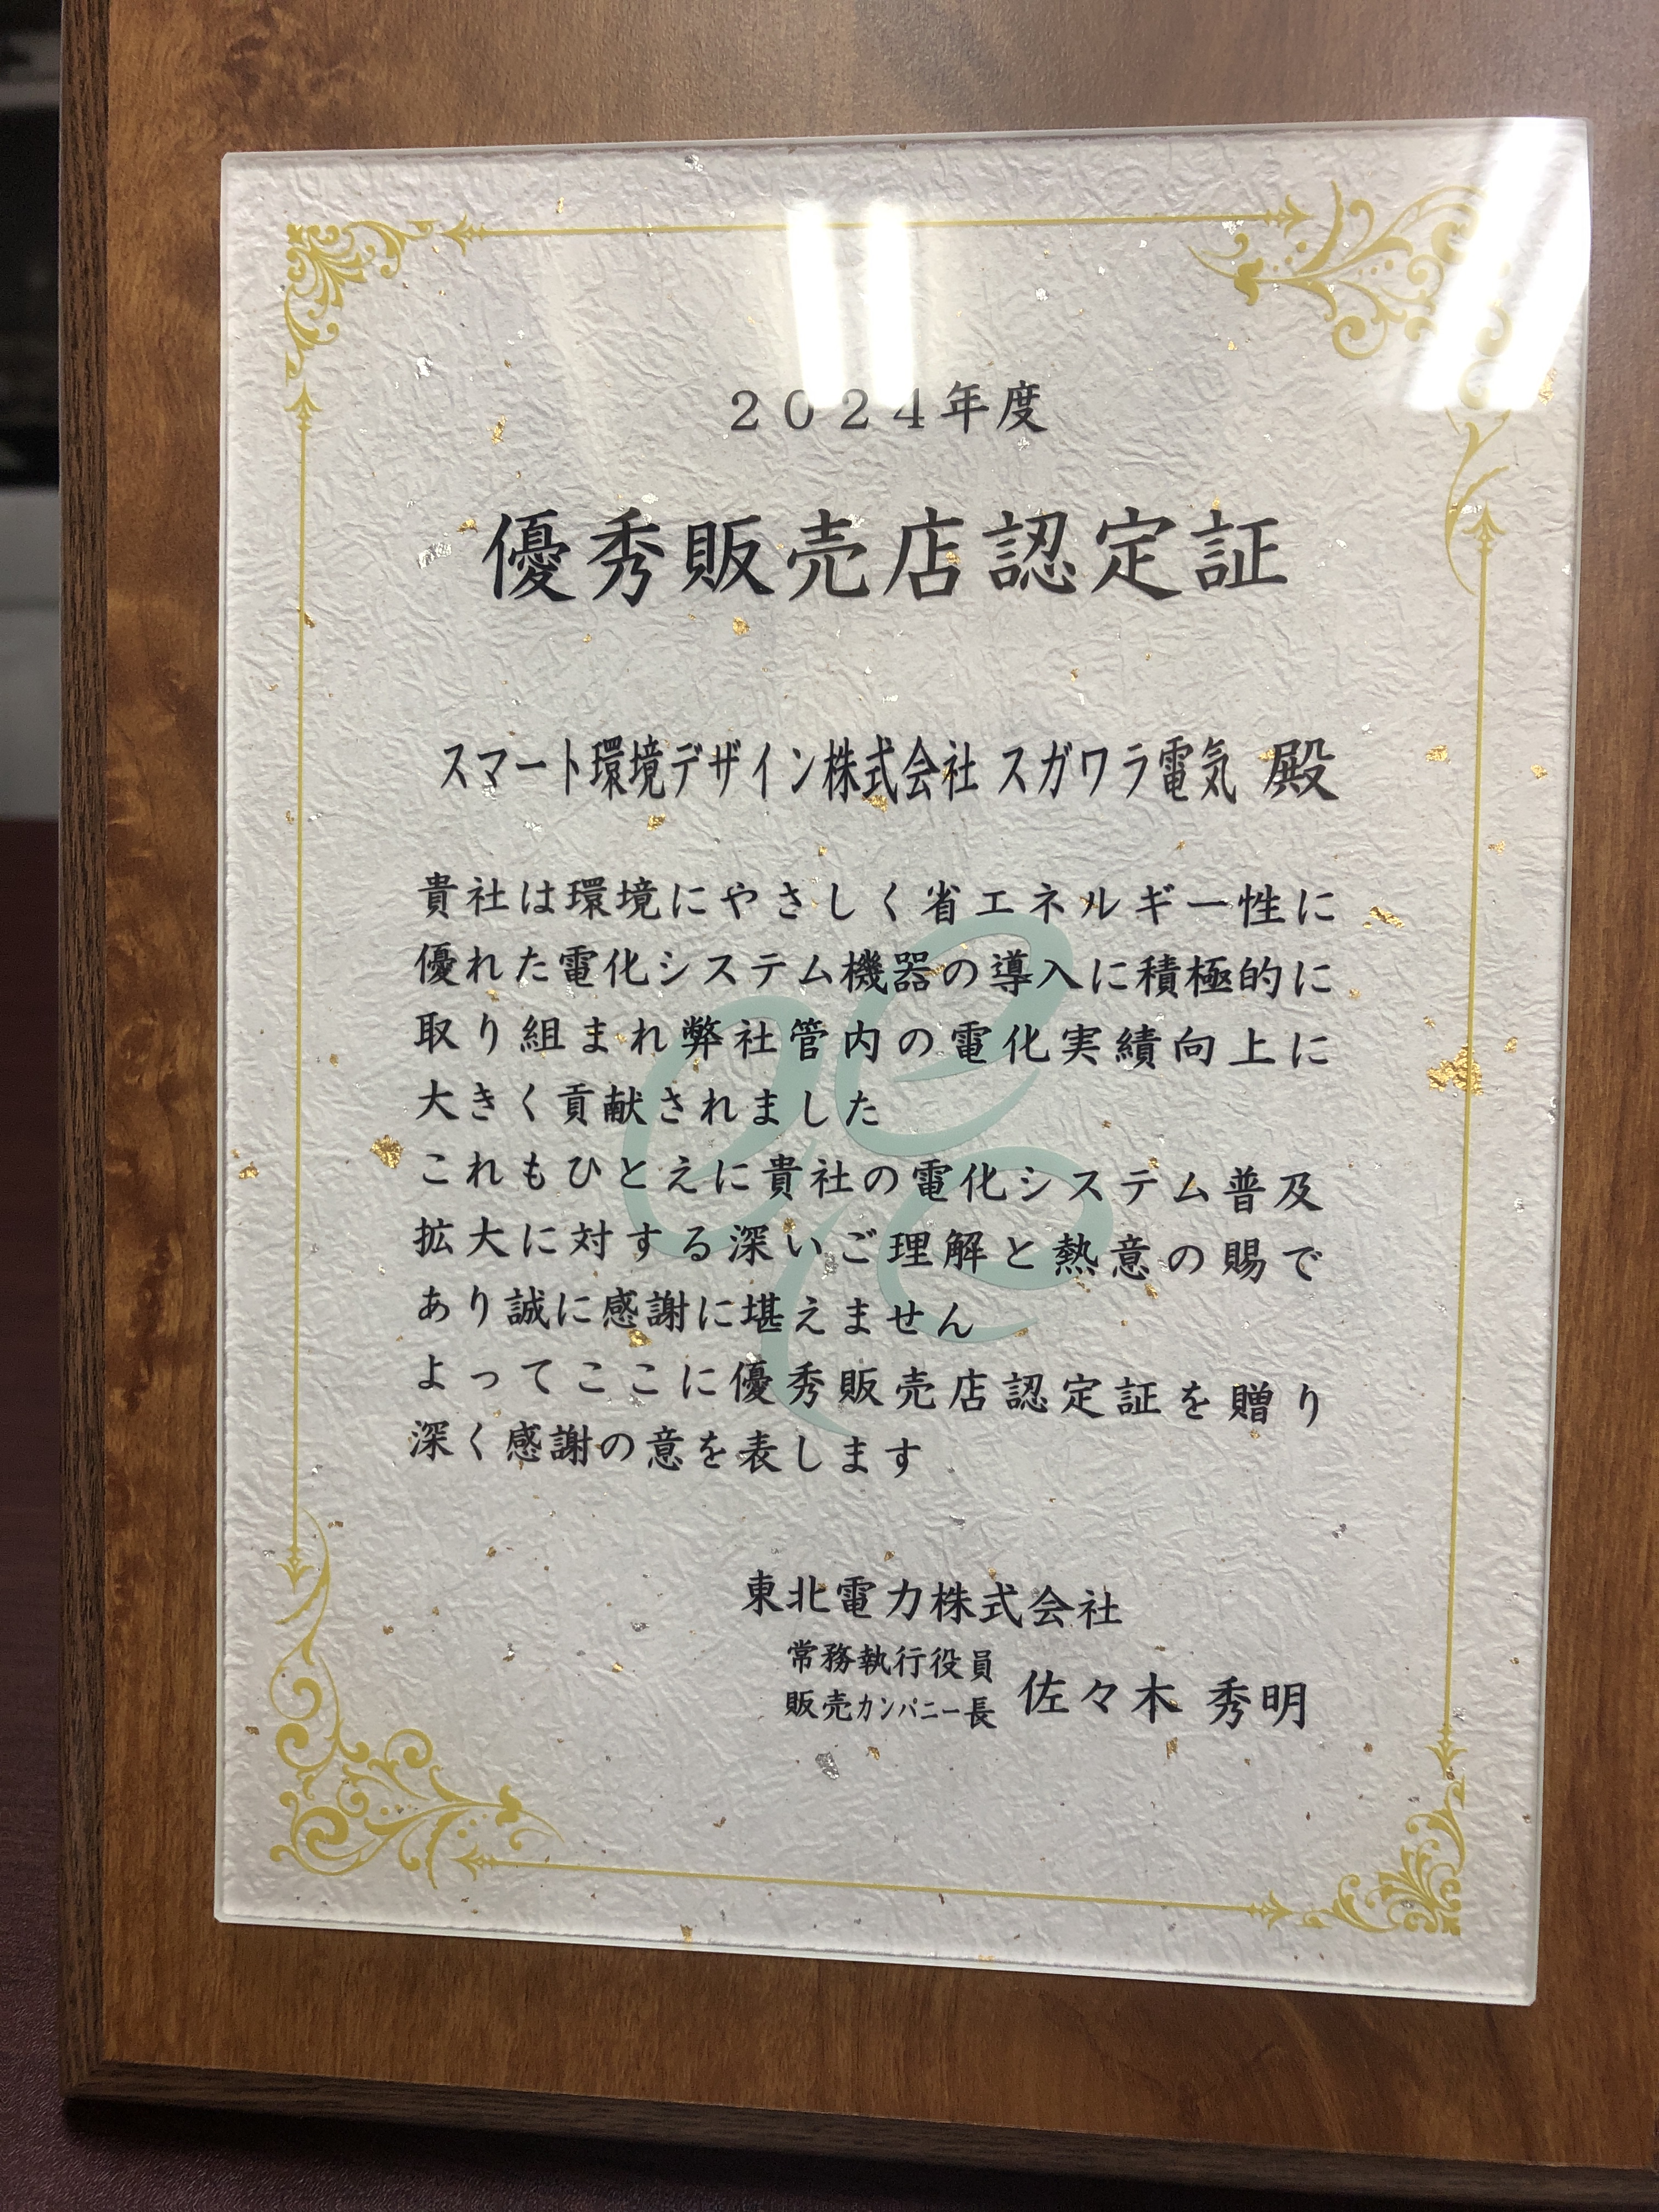 2024年度
優秀販売店認定証
スマート環境デザイン株式会社 スガワラ電気 殿
貴社は環境にやさしく省エネルギー性に
優れた電化システム機器の導入に積極的に
取り組まれ弊社管内の電化実績向上に
大きく貢献されました
これもひとえに貴社の電化システム普及
拡大に対する深いご理解と熱意の賜で
あり誠に感謝に堪えません
よってここに優秀販売店認定証を贈り
深く感謝の意を表します
東北電力株式会社
常務執行役員
販売カンパニー長 佐々木 秀明